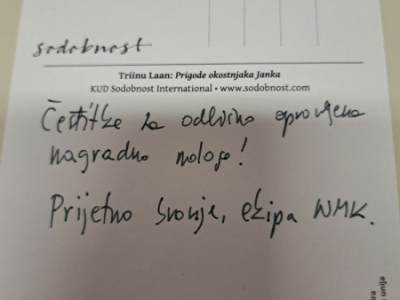 sodobnost
Triinu Laan: Prigode okostnjaka Janka
KUD Sodobnost International • www.sodobnost.com
Čestitke za odlično opravljeno
nagradno nalogo!
Prijetno branje, ekipa WMK.